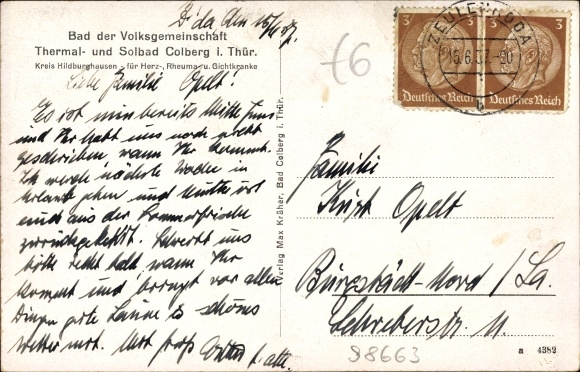 Bad der Volksgemeinschaft
Thermal- und Solbad Colberg i. Thür.
Kreis Hildburghausen - für Herz-, Rheuma u. Gichtkranke
Liebe Familie Opelt!
Es ist nun bereits Mitte Juni
und Ihr habt uns noch nicht
geschrieben, wann Ihr kommt.
Ich werde nächste Woche in
Urlaub gehen und Mutter ist
auch aus der Sommerfrische
zurückgekehrt. Schreibt uns
bitte recht bald wann Ihr
kommt und bringt vor allen
Dingen gute Laune u. schönes
Wetter mit.
Verlag Max Kräher, Bad Colberg i. Thür.
3 3 3
Deutsches Reich Deutsches Reich
ZEULENRODA
15.6.37.-20
Familie
Kurt Opelt
Burgstädt-Nord / Sa.
Schreberstr. 11
a 4382
98663